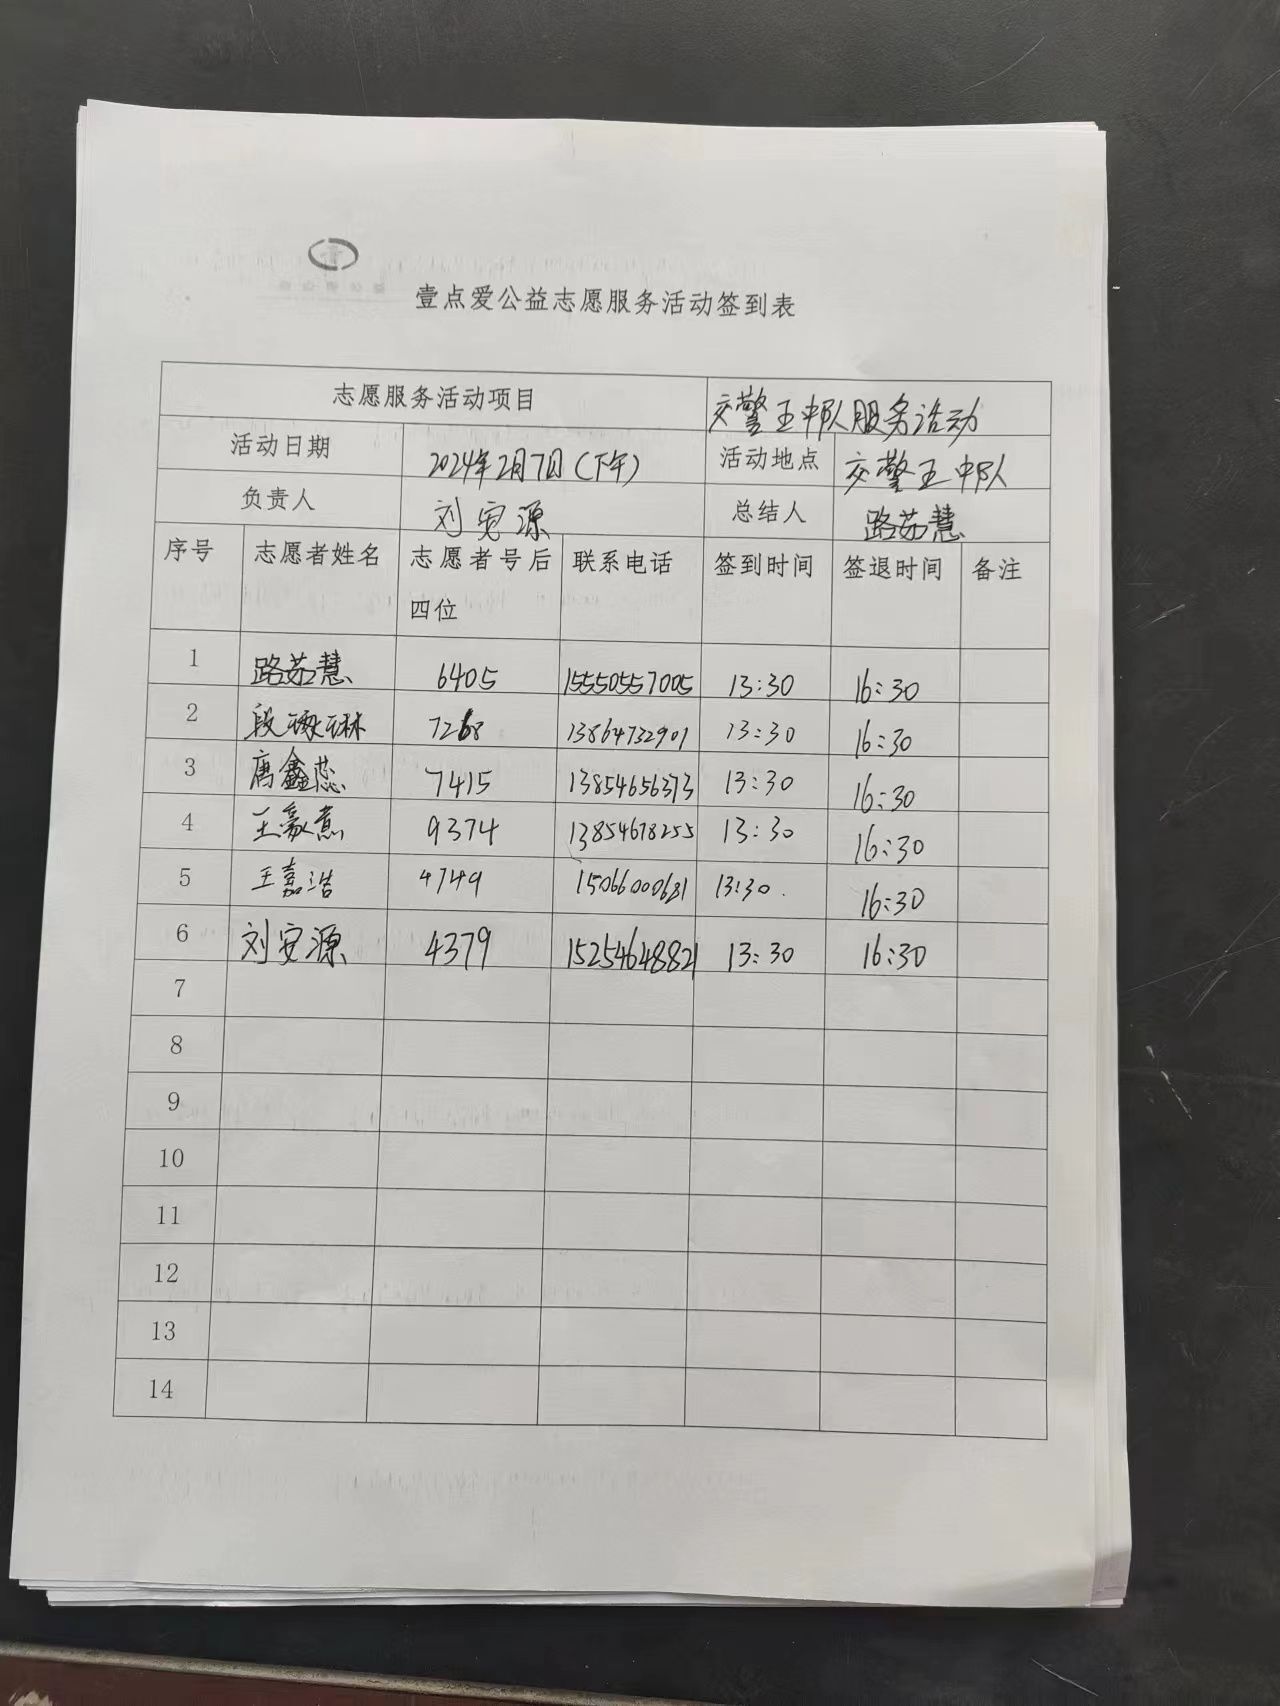 壹点爱公益志愿服务活动签到表
志愿服务活动项目 交警五中队服务活动
活动日期 2024年2月7日(下午) 活动地点 交警五中队
负责人 刘安源 总结人 路茹慧
序号 志愿者姓名 志愿者号后四位 联系电话 签到时间 签退时间 备注
1 路茹慧 6405 15550557005 13:30 16:30
2 段琳 7268 13864732901 13:30 16:30
3 唐鑫蕊 7415 13854656373 13:30 16:30
4 王豪 9374 13854678255 13:30 16:30
5 王嘉浩 4749 15066000681 13:30. 16:30
6 刘安源 4379 15254648821 13:30 16:30
7
8
9
10
11
12
13
14